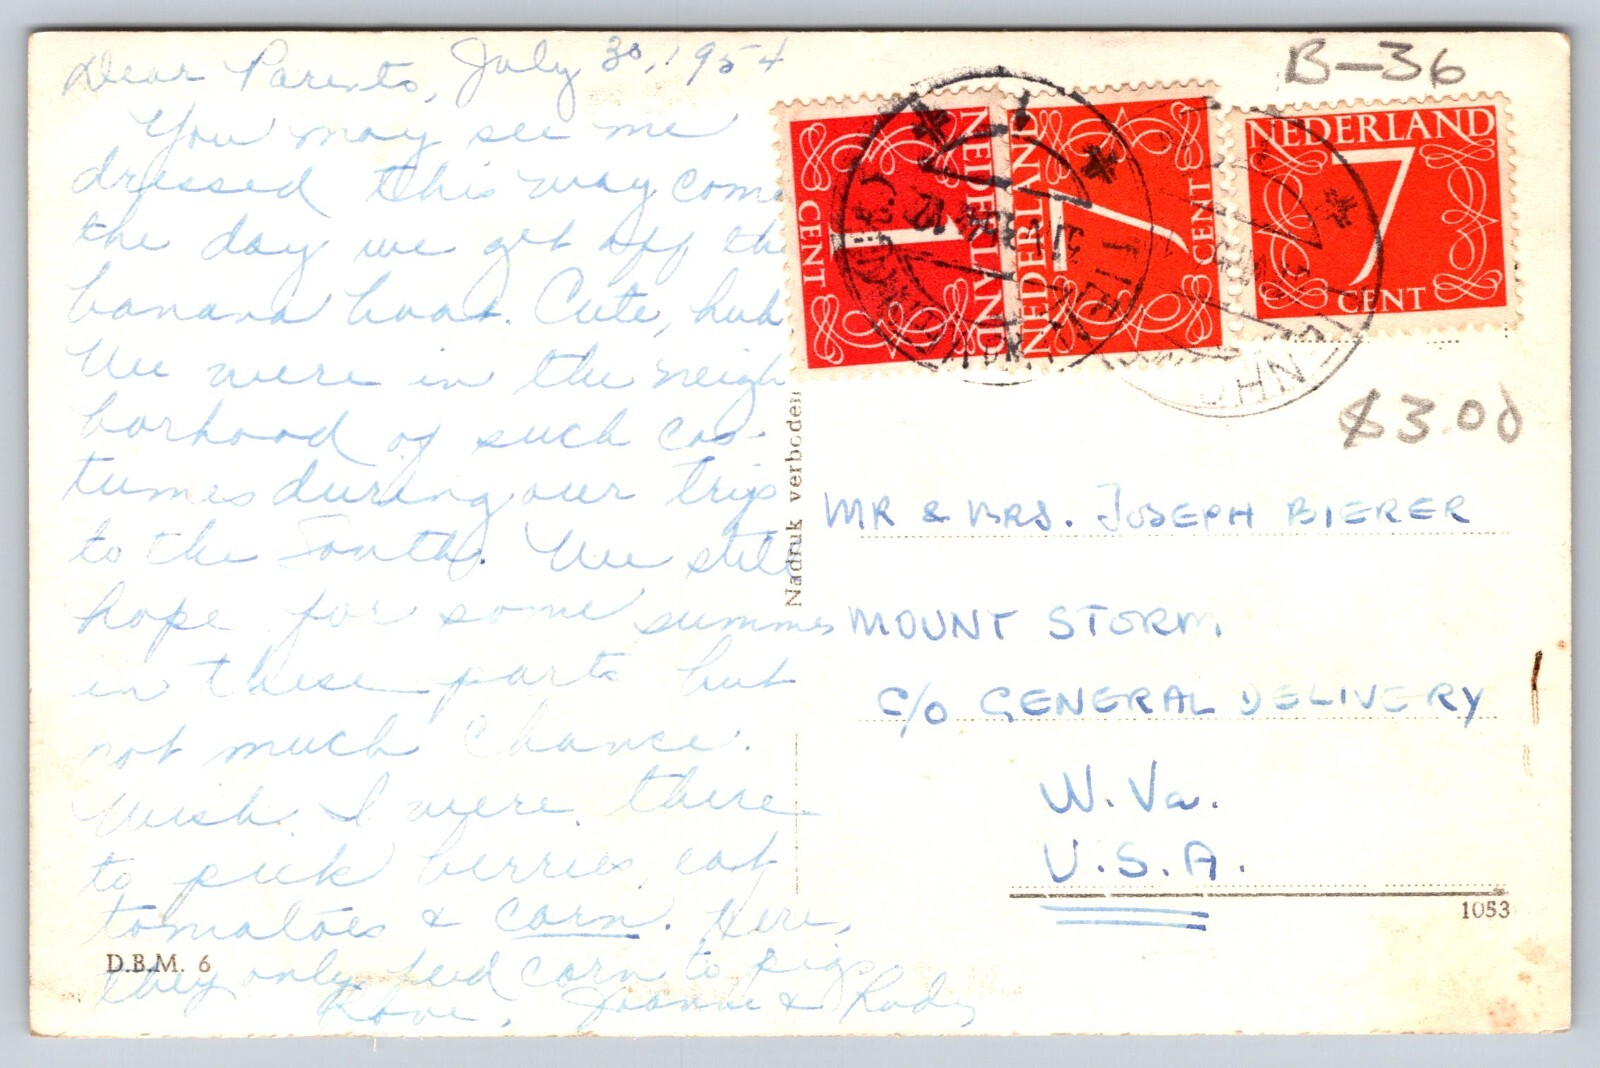 Dear Parents, July 30, 1954
You may see me
dressed this way come
the day we get off the
banana boat. Cute, huh
We were in the neigh
borhood of such cos-
tumes during our trip
to the South. We still
hope for some summer
in these parts but
not much chance.
Wish I were there
to pick berries, eat
tomatoes & corn. Here,
they only feed corn to pigs
Love, Joanne & Rudy
D.B.M. 6
Nadruk verboden
B-36
NEDERLAND
1
CENT
NEDERLAND
7
CENT
NEDERLAND
7
CENT
$3.00
MR & MRS. JOSEPH BIERER
MOUNT STORM,
C/O GENERAL DELIVERY
W. Va.
U.S.A.
1053